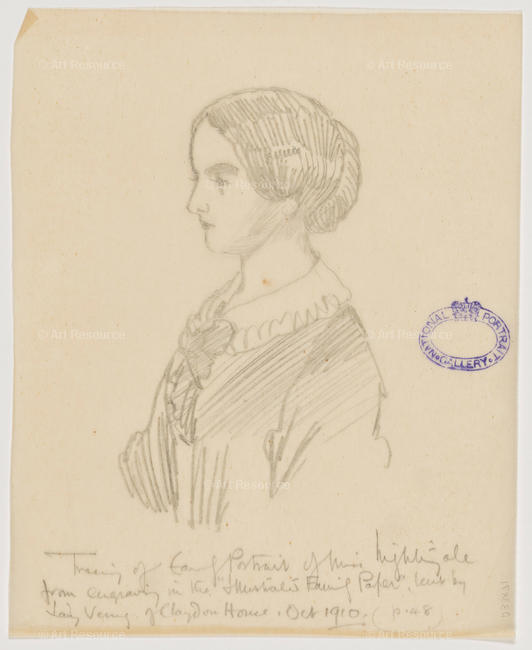 © Art Resource
© Art Resource
© Art Resource
© Art Resource
© Art Resource
NATIONAL PORTRAIT GALLERY
© Art Resource
© Art Resource
© Art Resource
Tracing of Early Portrait of Miss Nightingale
from engraving in the "Illustrated Family Paper", lent by
Lady Verney of Claydon House. Oct 1910. (p. 48).